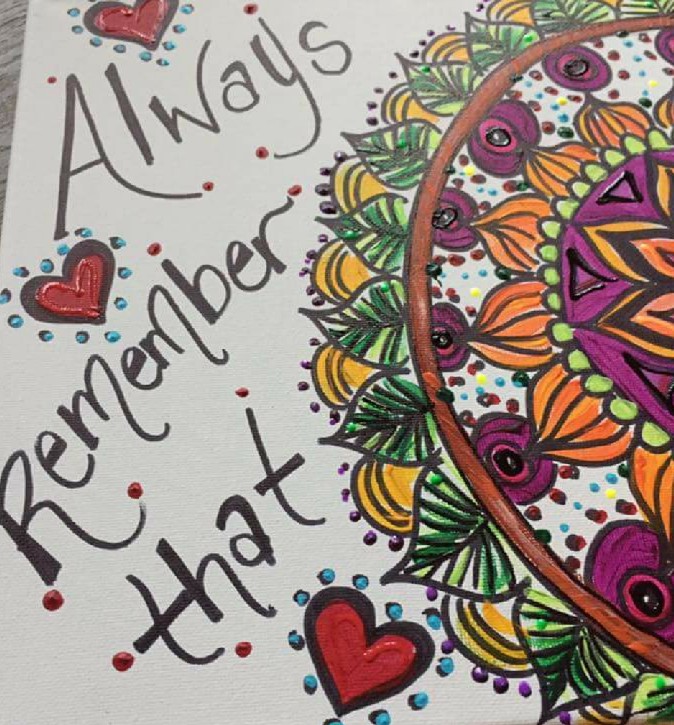 Always
Remember
that